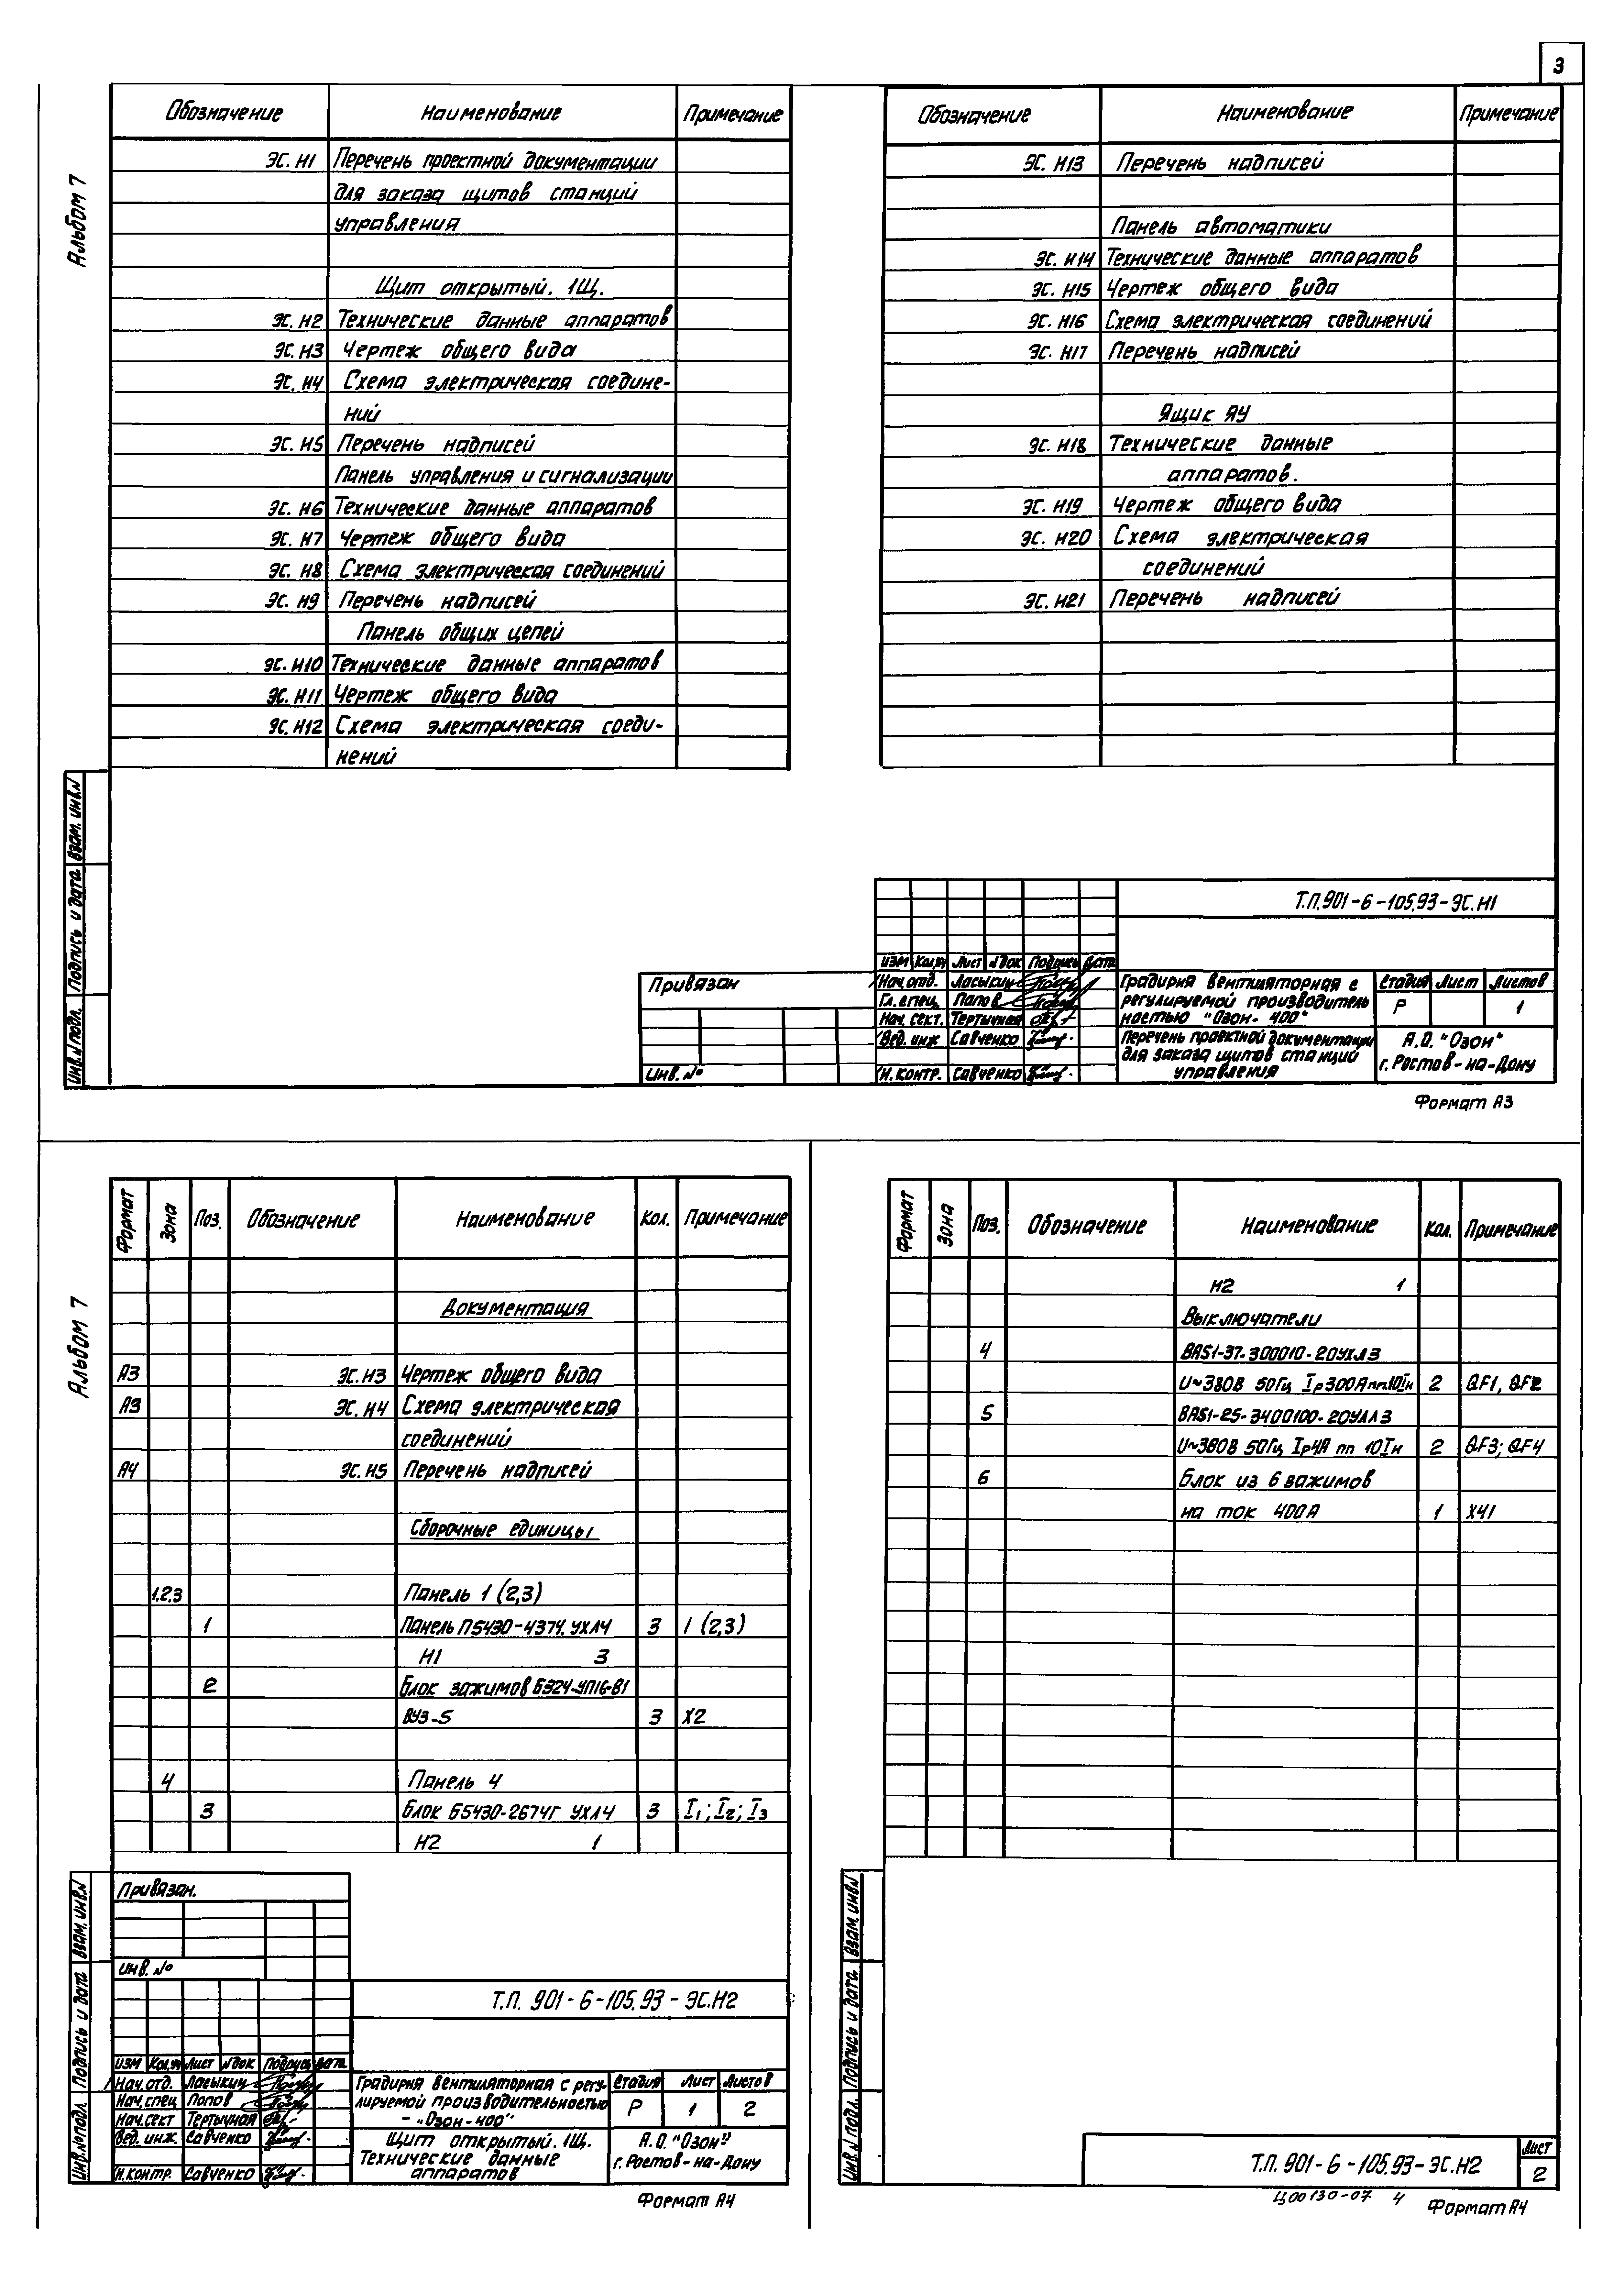 3
Альбом 7
Обозначение Наименование Примечание
ЭС. Н1 Перечень проектной документации
для заказа щитов станций
управления
Щит открытый. 1Щ.
ЭС. Н2 Технические данные аппаратов
ЭС. Н3 Чертеж общего вида
ЭС. Н4 Схема электрическая соедине-
ний
ЭС. Н5 Перечень надписей
Панель управления и сигнализации
ЭС. Н6 Технические данные аппаратов
ЭС. Н7 Чертеж общего вида
ЭС. Н8 Схема электрическая соединений
ЭС. Н9 Перечень надписей
Панель общих цепей
ЭС. Н10 Технические данные аппаратов
ЭС. Н11 Чертеж общего вида
ЭС. Н12 Схема электрическая соеди-
нений
Обозначение Наименование Примечание
ЭС. Н13 Перечень надписей
Панель автоматики
ЭС. Н14 Технические данные аппаратов
ЭС. Н15 Чертеж общего вида
ЭС. Н16 Схема электрическая соединений
ЭС. Н17 Перечень надписей
Ящик ЯУ
ЭС. Н18 Технические данные
аппаратов.
ЭС. Н19 Чертеж общего вида
ЭС. Н20 Схема электрическая
соединений
ЭС. Н21 Перечень надписей
Инв.N подл. Подпись и дата Взам. инв.N
Привязан
Инв. №
Т.П. 901-6-105.93-ЭС.Н1
Изм Кол.уч Лист Nдок Подпись Дата
Нач. отд. Ласыкин
Гл. спец. Попов
Нач. сект. Тертычная
Вед. инж Савченко
Н. контр. Савченко
Градирня вентиляторная с
регулируемой производитель
ностью "Озон-400"
Стадия Лист Листов
Р 1
Перечень проектной документации
для заказа щитов станций
управления
А.О. "Озон"
г. Ростов-на-Дону
Формат А3
Альбом 7
Формат Зона Поз. Обозначение Наименование Кол. Примечание
Документация
А3 ЭС.Н3 Чертеж общего вида
А3 ЭС.Н4 Схема электрическая
соединений
А4 ЭС.Н5 Перечень надписей
Сборочные единицы
1.2.3 Панель 1 (2,3)
1 Панель П5430-4374 УХЛ4 3 1 (2,3)
Н1 3
2 Блок зажимов Б324-4П16-В1
ВУЗ-5 3 Х2
4 Панель 4
3 Блок Б5430-2674Г УХЛ4 3 I1; I2; I3
Н2 1
Привязан.
Инв. №
Инв.№ подл. Подпись и дата Взам. инв.N
Т.П. 901-6-105.93-ЭС.Н2
Изм Кол.уч Лист Nдок Подпись Дата
Нач. отд. Ласыкин
Нач. спец Попов
Нач. сект Тертычная
Вед. инж. Савченко
Н. контр. Савченко
Градирня вентиляторная с регу-
лируемой производительностью
- "Озон-400"
Стадия Лист Листов
Р 1 2
Щит открытый. 1Щ.
Технические данные
аппаратов
А.О. "Озон"
г. Ростов-на-Дону
Формат А4
Формат Зона Поз. Обозначение Наименование Кол. Примечание
Н2 1
Выключатели
4 ВА51-37-300010-20УХЛ3
U~380В 50Гц Iр300А пп.10Iн 2 QF1, QF2
5 ВА51-25-3400100-20УХЛ3
U~380В 50Гц Iр4А пп 10Iн 2 QF3; QF4
6 Блок из 6 зажимов
на ток 400А 1 Х41
Инв.N подл. Подпись и дата Взам. инв.N
Т.П. 901-6-105.93-ЭС.Н2
Лист
2
Ц00130-07 4
Формат А4